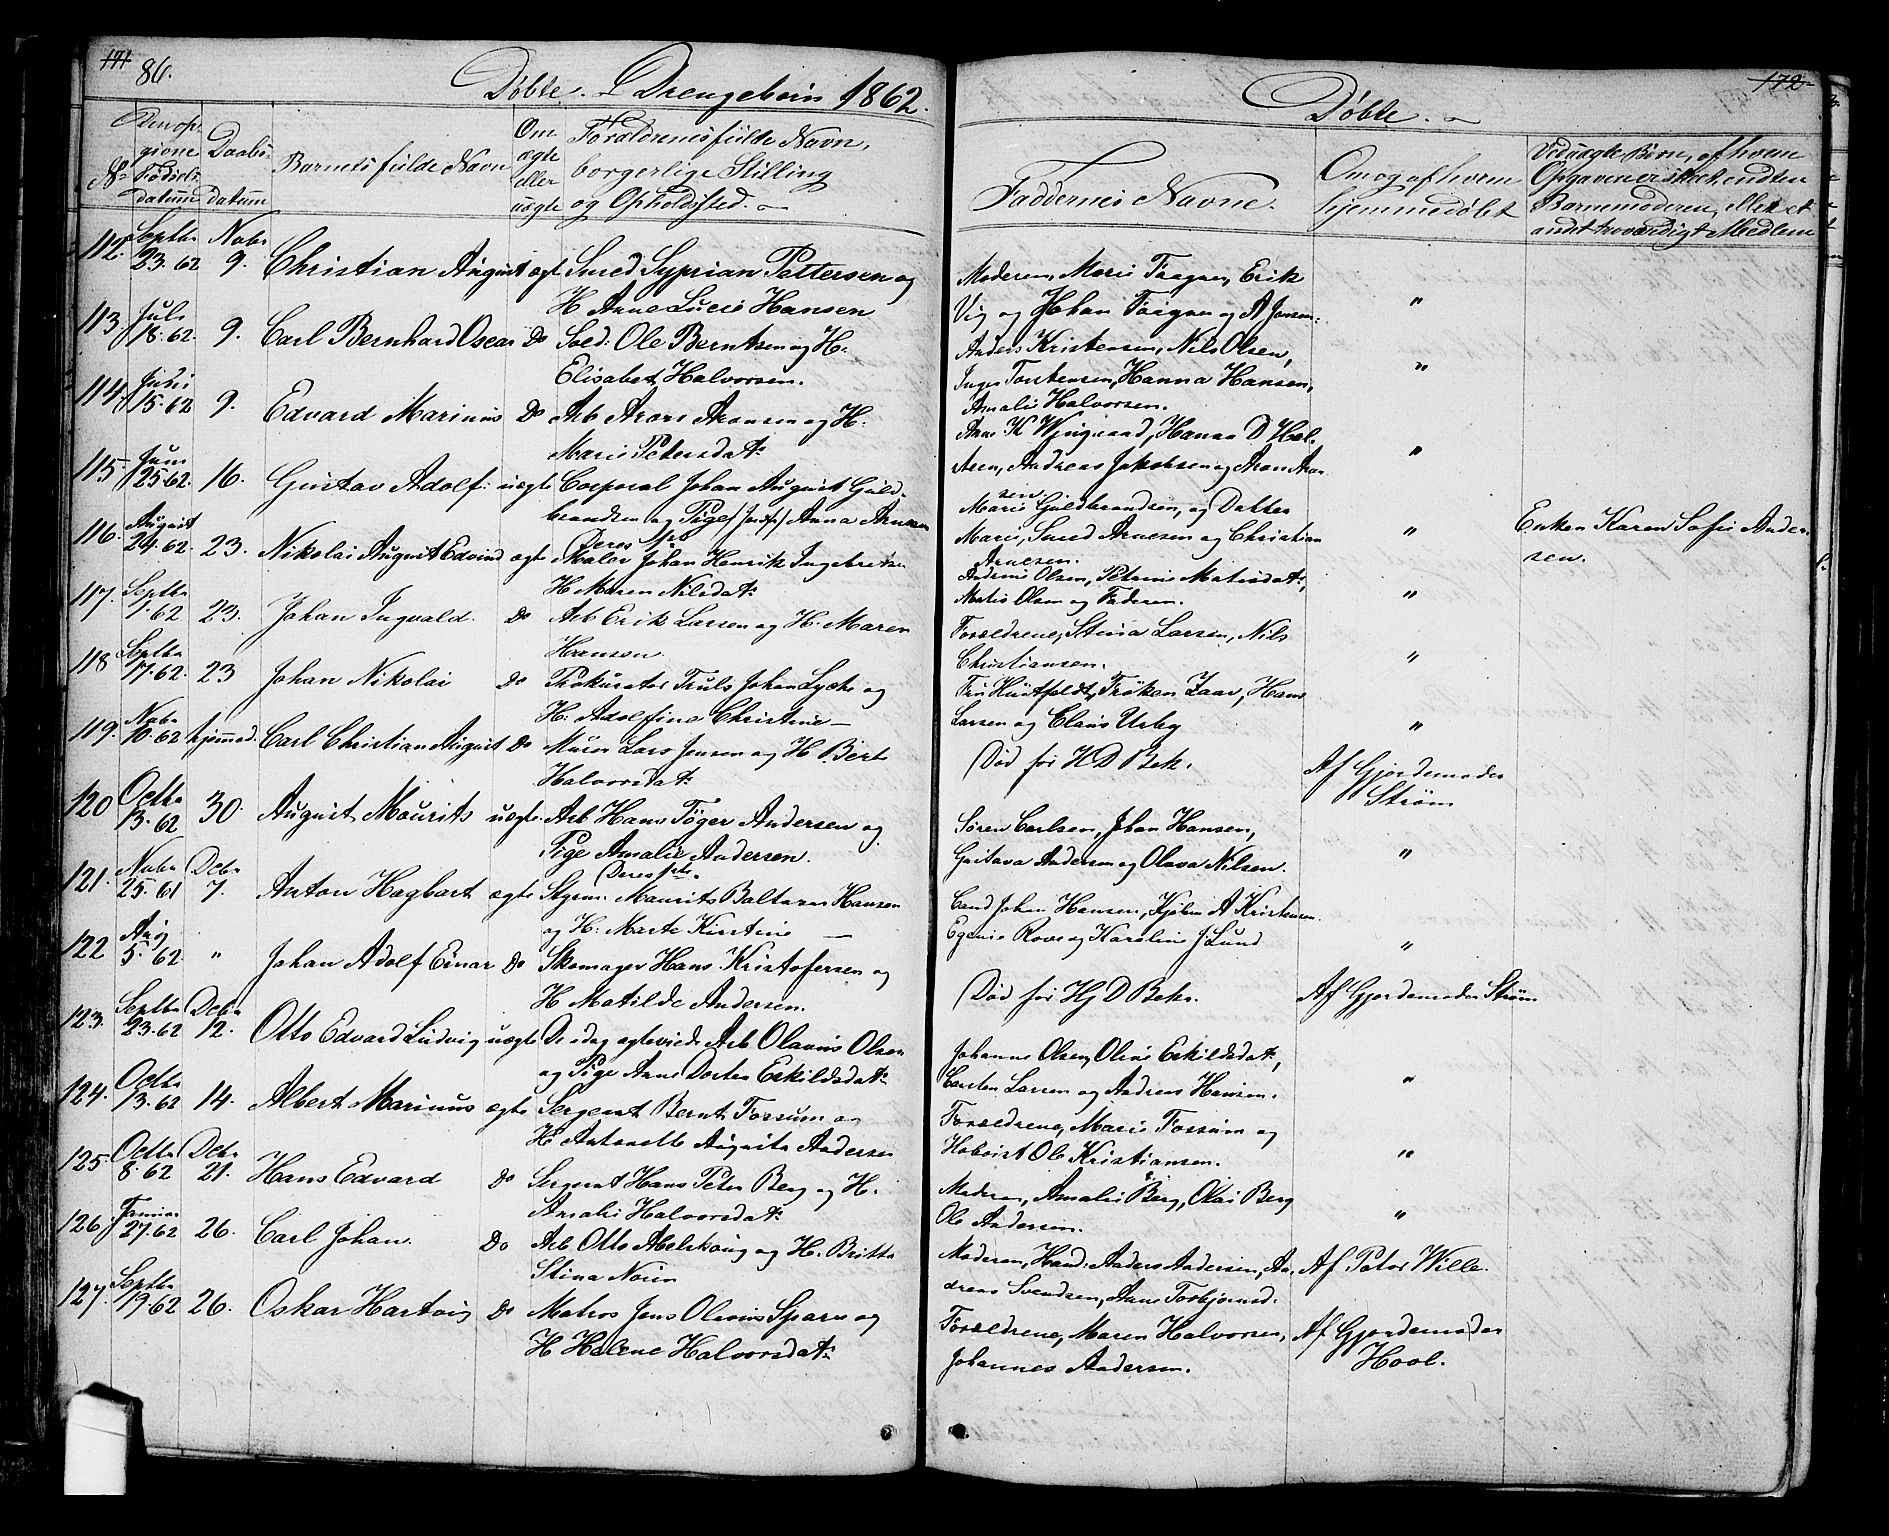 171
86.
Døbte. Drengebørn 1862.
No
Den op-
givne
Fødsels-
datum
Daabs-
datum
Barnets fulde Navn
Om
ægte
eller
uægte
Forældrenes fulde Navn,
borgerlige Stilling
og Opholdsted.
112. Septbr 23. 62 Novbr 9. Christian August ægte Smed Syprian Pettersen og
H Anne Lucie Hansen
113. Juli 18. 62. 9. Carl Bernhard Oscar Do Sold: Ole Berntsen og H:
Elisabet Halvorsen.
114. Juni 15. 62 9. Edvard Marinus Do Arb Arons Aronsen og H:
Marie Petersdat:
115. Juni 25. 62. 16. Gustav Adolf: uægte Corporal Johan August Guld-
brandsen og Pige Anna Arnesen
116. August 24. 62. 23. Nikolai August Edvind ægte Maler Johan Henrik Ingebretsen
H Maren Nilsdat:
117. Septbr 1. 62 23. Johan Ingvald. Do Arb Erik Larsen og H. Maren
Hansen.
118 Septbr 17. 62. 23 Johan Nikolai Do Prokurator Truls Johan Lyche og
H: Adolfine Christine
119. Novbr 10. 62 hjemmed. Carl Christian August Do Murer Lars Jensen og H Berte
Halvorsdat:
120 Octbr 13. 62 30. August Mourits uægte. Arb Hans Töger Andersen og
Pige Amalie Andersen.
Deres 1ste.
121. Novbr 25. 61 Debr 7. Anton Hagbart ægte Styrm: Maurits Baltazar Hansen
og H: Marte Kirstine
122 Aug 5. 62. " Johan Adolf Einar Do Skomager Hans Kristofersen og
H Matilde Andersen.
123. Septbr 23. 62 Debr 12. Otto Edvard Ludvig uægte De idag ægteviede Arb Olavus Olsen
og Pige Anne Dortea Eskildsdat:
124. Octbr 13. 62 14. Albert Marinus ægte Sergeant Bernt Fossum og
H Antonette Augusta Andersen
125. Octbr 8. 62 Debr 21. Hans Edvard Do Sergeant Hans Peter Berg og H:
Amalie Halvorsdat:
126. Januar 27. 62 26. Carl Johan. Do Arb Otto Abelskoug og H. Britta
Stina Noren
127. Septbr 19. 62 26. Oskar Hartvig Do Matros Jens Olavus Sparre og
H Helene Halvorsdat:
172
Døbte.
Faddernes Navne.
Om og af hvem
hjemmedøbt
Ved uægte Børn, af hvem
Opgaven er skeet, endten
Barnemoderen, eller et
andet troværdigt Medlem
Moderen, Marie Taagen, Erik
Vig og Johan Torgen og A Jonsen. "
Anders Kristensen, Nils Olsen,
Inger Torstensen, Hanna Hansen, "
Amalie Halvorsen.
Anne K Wingaard, Hanna D Hal-
sten, Andreas Jakobsen og Aron Aron- "
sen.
Marie Guldbrandsen, og Datter
Marie, Smed Arnesen og Christian " Enken Karen Sofie Ander-
Arnesen. sen.
Andrine Olsen, Petrine Matisdat:,
Matis Olsen og Faderen. "
Forældrene, Stina Larsen, Nils
Christiansen. "
Fru Huitfeldt, Frøken Zaar, Hans
Larsen og Claus Urby "
Død før H D Bek. Af Gjordemoder
Strøm
Søren Carlsen, Johan Hansen,
Gustava Andersen og Olava Nilsen. "
Cand Johan Hansen, Kjøbm A Kristensen.
Egenie Rove og Karoline J: Lund "
Død før Hj D Bek. Af Gjordemoder Strøm
Johanne Olsen, Oline Eskildsdat:,
Carsten Larsen og Andreas Hansen. "
Forældrene, Marie Fossum og
Hoboist Ole Kristiansen. "
Moderen, Amalie Berg, Olai Berg
Ole Andersen. "
Moderen, Hand: Anders Andersen, An- Af Pator Wille.
dreas Svendsen, Anne Torbjørnsd.
Forældrene, Maren Halvorsen, Af Gjordemoder
Johannes Andersen. Hool.